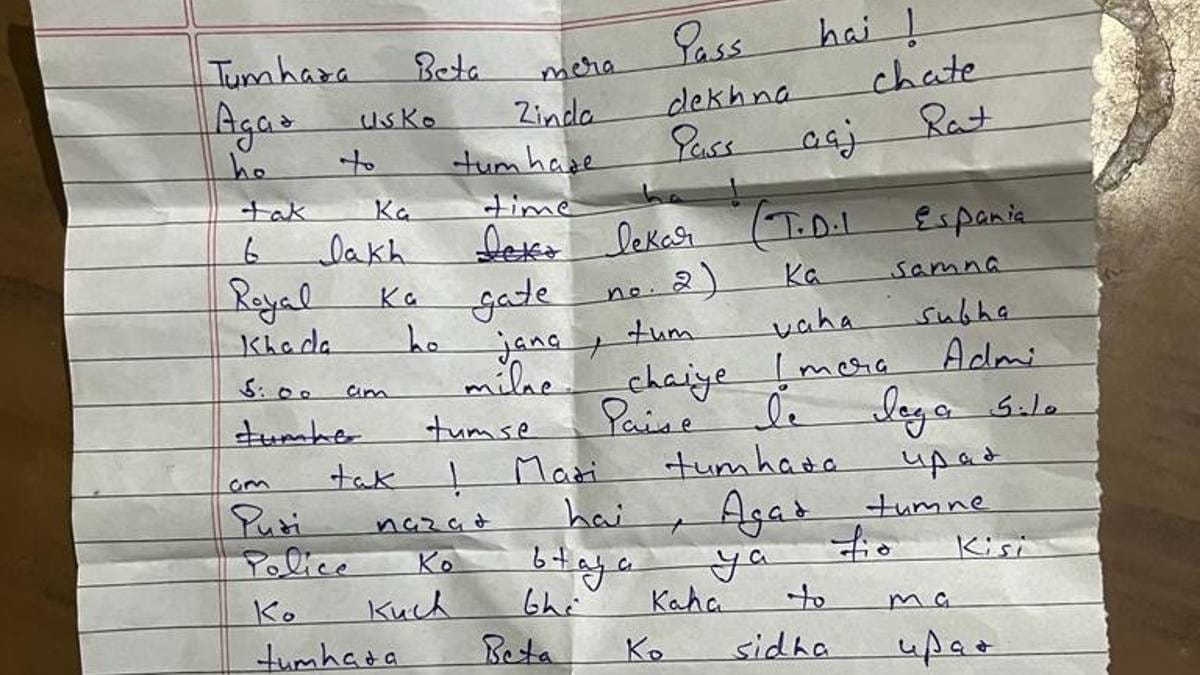 Tumhara Beta mera Pass hai !
Agar usko Zinda dekhna chate
ho to tumhare Pass aaj Rat
tak Ka time ha !
6 lakh lekr lekar (T.D.I Espania
Royal Ka gate no. 2) Ka samna
Khada ho jana, tum vaha subha
5:00 am milne chaiye ! mera Admi
tumhe tumse Paise le lega 5:10
am tak ! Mari tumhara upar
Puri nazar hai, Agar tumne
Police Ko btaya ya fir Kisi
Ko Kuch bhi Kaha to ma
tumhara Beta Ko sidha upar